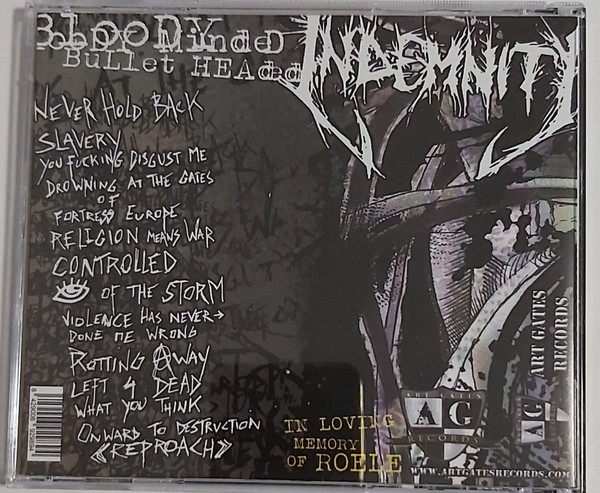 BLOODY
Minded
Bullet HEAded
INDEMNITY
NEVER HOLD BACK
SLAVERY
YOU FUCKING DISGUST ME
DROWNING AT THE GATES
OF
FORTRESS EUROPE
RELIGION MEANS WAR
CONTROLLED
OF THE STORM
VIOLENCE HAS NEVER→
DONE ME WRONG
ROTTING AWAY
LEFT 4 DEAD
WHAT YOU THINK
ONWARD TO DESTRUCTION
《REPROACH》
IN LOVING
MEMORY
OF ROELE
ART GATES
AG
RECORDS
WWW.ARTGATESRECORDS.COM
AG
ART GATES
RECORDS